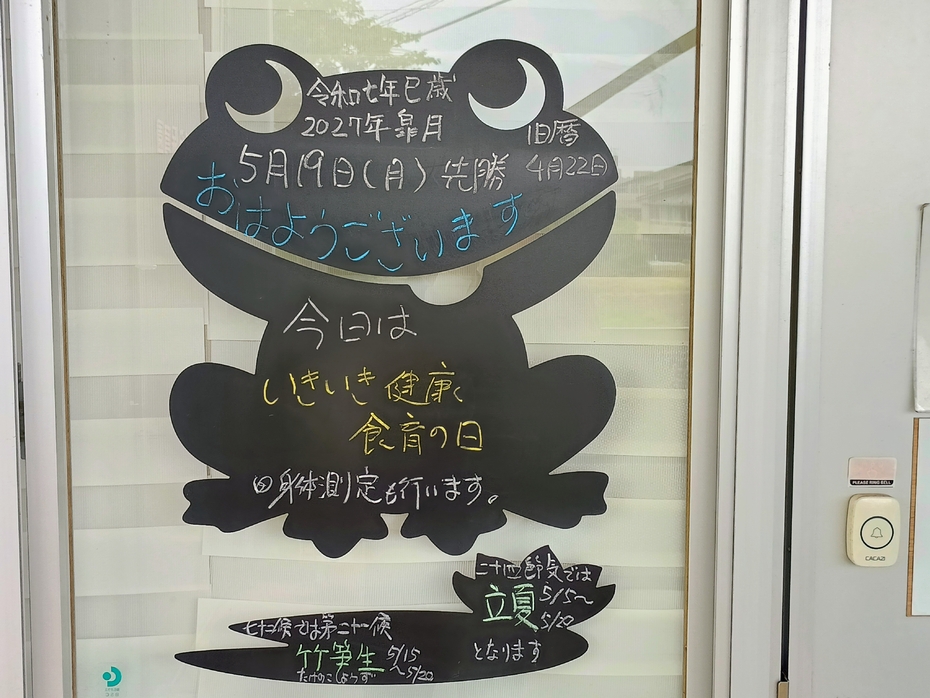 令和七年巳歳
2027年皐月
旧暦
5月19日(月) 先勝 4月22日
おはようございます
今日は
いきいき健康
食育の日
身体測定も行います。
二十四節気では
立夏 5/5〜
5/20
となります
七十二候では第二十一候
竹笋生 5/15
たけのこしょうず 〜5/20
PLEASE RING BELL
CACAZI